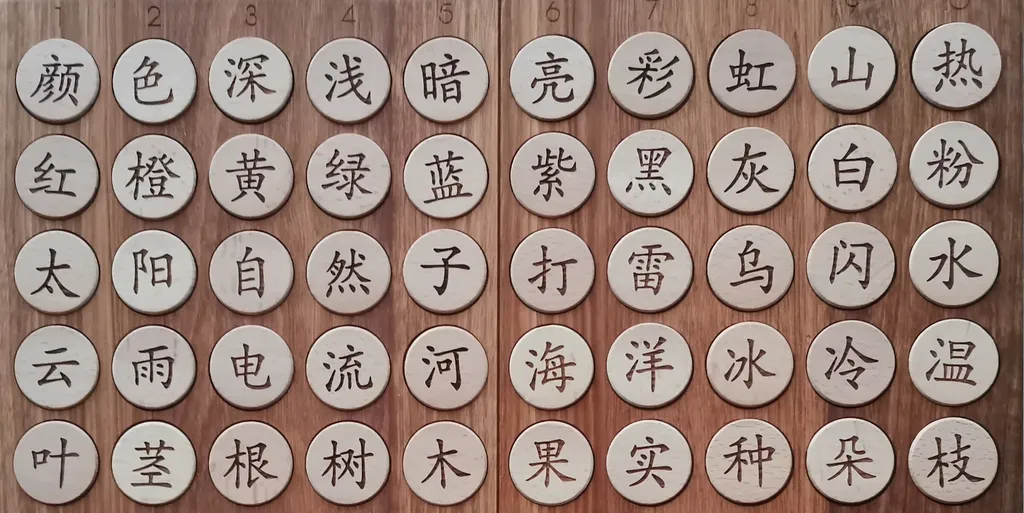 1 2 3 4 5 6 7 8 9
颜 色 深 浅 暗 亮 彩 虹 山 热
红 橙 黄 绿 蓝 紫 黑 灰 白 粉
太 阳 自 然 子 打 雷 乌 闪 水
云 雨 电 流 河 海 洋 冰 冷 温
叶 茎 根 树 木 果 实 种 朵 枝